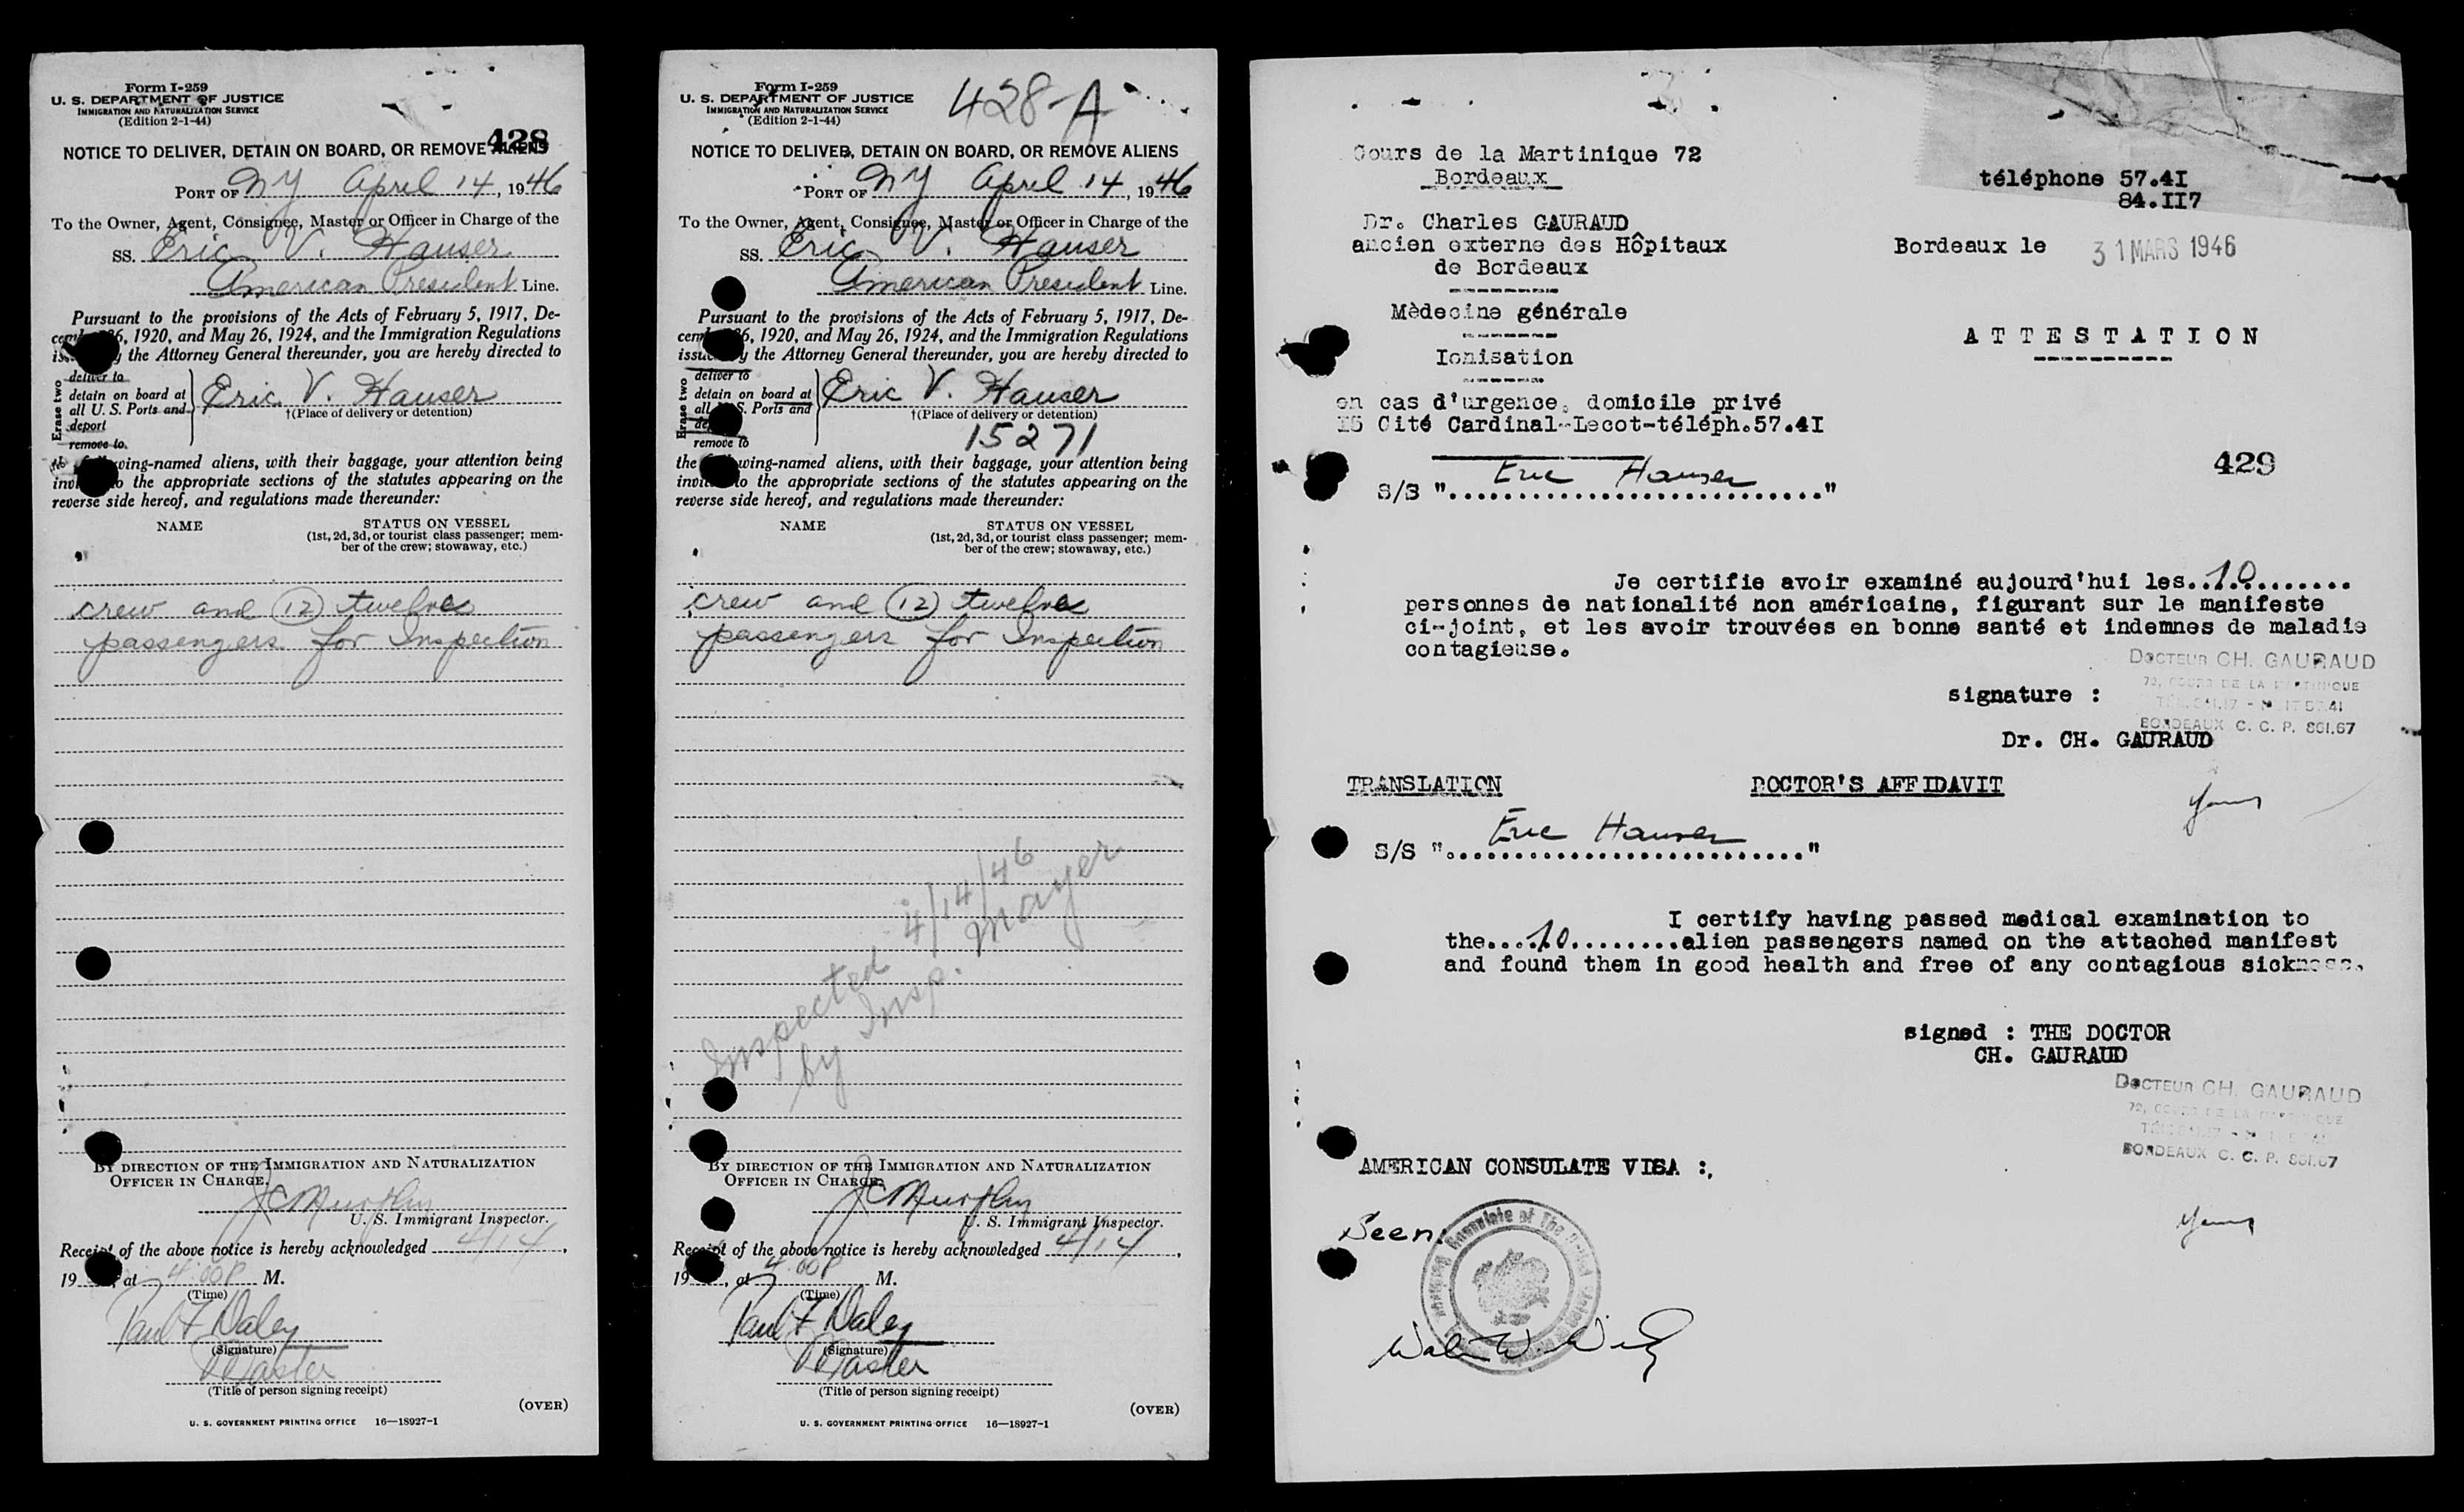 Form I-259
U. S. DEPARTMENT OF JUSTICE
IMMIGRATION AND NATURALIZATION SERVICE
(Edition 2-1-44)
428
NOTICE TO DELIVER, DETAIN ON BOARD, OR REMOVE ALIENS
PORT OF NY April 14, 1946
To the Owner, Agent, Consignee, Master or Officer in Charge of the
SS. Eric V. Hauser
American President Line.
Pursuant to the provisions of the Acts of February 5, 1917, De-
6, 1920, and May 26, 1924, and the Immigration Regulations
the Attorney General thereunder, you are hereby directed to
Erase two
deliver to
detain on board at
all U. S. Ports and
deport
remove to
Eric V. Hauser
†(Place of delivery or detention)
wing-named aliens, with their baggage, your attention being
to the appropriate sections of the statutes appearing on the
reverse side hereof, and regulations made thereunder:
NAME STATUS ON VESSEL
(1st, 2d, 3d, or tourist class passenger; mem-
ber of the crew; stowaway, etc.)
crew and (12) twelve
passengers for Inspection
BY DIRECTION OF THE IMMIGRATION AND NATURALIZATION
OFFICER IN CHARGE
JC Murphy
U. S. Immigrant Inspector.
Receipt of the above notice is hereby acknowledged 4/14,
19, at 4:00 P M.
(Time)
Paul F Daley
(Signature)
Master
(Title of person signing receipt)
(OVER)
U. S. GOVERNMENT PRINTING OFFICE 16—18927-1
Form I-259
U. S. DEPARTMENT OF JUSTICE
IMMIGRATION AND NATURALIZATION SERVICE
(Edition 2-1-44)
428-A
NOTICE TO DELIVER, DETAIN ON BOARD, OR REMOVE ALIENS
PORT OF NY April 14, 1946
To the Owner, Agent, Consignee, Master or Officer in Charge of the
SS. Eric V. Hauser
American President Line.
Pursuant to the provisions of the Acts of February 5, 1917, De-
6, 1920, and May 26, 1924, and the Immigration Regulations
the Attorney General thereunder, you are hereby directed to
Erase two
deliver to
detain on board at
all U. S. Ports and
remove to
Eric V. Hauser
†(Place of delivery or detention)
15271
the wing-named aliens, with their baggage, your attention being
to the appropriate sections of the statutes appearing on the
reverse side hereof, and regulations made thereunder:
NAME STATUS ON VESSEL
(1st, 2d, 3d, or tourist class passenger; mem-
ber of the crew; stowaway, etc.)
crew and (12) twelve
passengers for Inspection
Inspected 4/14/46
by Insp. Mayer
BY DIRECTION OF THE IMMIGRATION AND NATURALIZATION
OFFICER IN CHARGE
JC Murphy
U. S. Immigrant Inspector.
Receipt of the above notice is hereby acknowledged 4/14,
19, at 4:00 P M.
(Time)
Paul F Daley
(Signature)
Master
(Title of person signing receipt)
(OVER)
U. S. GOVERNMENT PRINTING OFFICE 16—18927-1
Cours de la Martinique 72
Bordeaux
téléphone 57.4I
84.II7
Dr. Charles GAURAUD
ancien externe des Hôpitaux
de Bordeaux
Bordeaux le 31 MARS 1946
Mèdecine générale
ATTESTATION
Ionisation
en cas d'urgence, domicile privé
I5 Cité Cardinal-Lecot-téléph.57.4I
429
S/S "Eric Hauser"
Je certifie avoir examiné aujourd'hui les..10..........
personnes de nationalité non américaine, figurant sur le manifeste
ci-joint, et les avoir trouvées en bonne santé et indemnes de maladie
contagieuse.
DOCTEUR CH. GAURAUD
72, COURS DE LA MARTINIQUE
BORDEAUX C. C. P. 861.67
signature :
Dr. CH. GAURAUD
TRANSLATION DOCTOR'S AFFIDAVIT
S/S "Eric Hauser"
I certify having passed medical examination to
the....10........alien passengers named on the attached manifest
and found them in good health and free of any contagious sickness.
signed : THE DOCTOR
CH. GAURAUD
DOCTEUR CH. GAURAUD
72, COURS DE LA MARTINIQUE
BORDEAUX C. C. P. 861.67
AMERICAN CONSULATE VISA :
Seen: